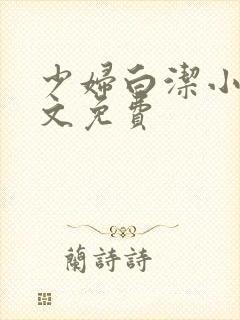 少婦白潔小
文免費
蘭詩詩